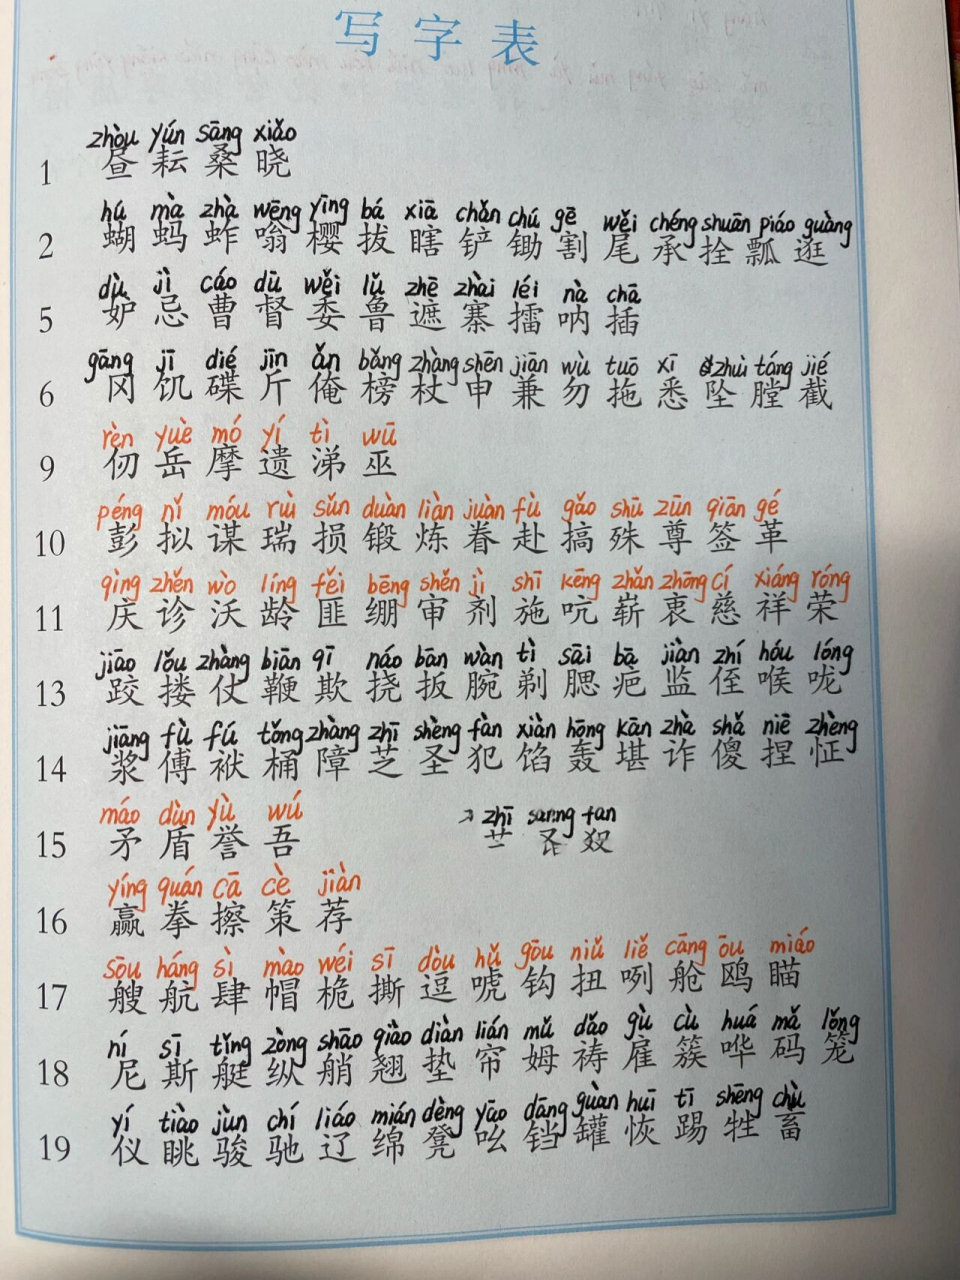 写字表
zhòu yún sāng xiǎo
1 昼 耘 桑 晓
hú mà zhà wēng yīng bá xiā chǎn chú gē wěi chéng shuān piáo guàng
2 蝴 蚂 蚱 嗡 樱 拔 瞎 铲 锄 割 尾 承 拴 瓢 逛
dù jì cáo dū wěi lǔ zhē zhài léi nà chā
5 妒 忌 曹 督 委 鲁 遮 寨 擂 呐 插
gāng jī dié jīn ǎn bǎng zhàng shēn jiān wù tuō xī zhuì táng jié
6 冈 饥 碟 斤 俺 榜 杖 申 兼 勿 拖 悉 坠 膛 截
rèn yuè mó yí tì wū
9 仞 岳 摩 遗 涕 巫
péng nǐ móu ruì sǔn duàn liàn juàn fù gǎo shū zūn qiān gé
10 彭 拟 谋 瑞 损 锻 炼 眷 赴 搞 殊 尊 签 革
qìng zhěn wò líng fěi bēng shěn jì shī kēng zhǎn zhōng cí xiáng róng
11 庆 诊 沃 龄 匪 绷 审 剂 施 吭 崭 衷 慈 祥 荣
jiāo lǒu zhàng biān qī náo bān wàn tì sāi bā jiàn zhí hóu lóng
13 跤 搂 仗 鞭 欺 挠 扳 腕 剃 腮 疤 监 侄 喉 咙
jiāng fù fú tǒng zhàng zhī shèng fàn xiàn hōng kān zhà shǎ niē zhèng
14 浆 傅 袱 桶 障 芝 圣 犯 馅 轰 堪 诈 傻 捏 怔
máo dùn yù wú zhī
15 矛 盾 誉 吾
yíng quán cā cè jiàn
16 赢 拳 擦 策 荐
sōu háng sì mào wéi sī dòu hǔ gōu niǔ liě cāng ōu miáo
17 艘 航 肆 帽 桅 撕 逗 唬 钩 扭 咧 舱 鸥 瞄
ní sī tǐng zòng shāo qiào diàn lián mǔ dǎo gù cù huá mǎ lǒng
18 尼 斯 艇 纵 艄 翘 垫 帘 姆 祷 雇 簇 哗 码 笼
yí tiào jùn chí liáo mián dèng yāo dāng guàn huī tī shēng chù
19 仪 眺 骏 驰 辽 绵 凳 吆 铛 罐 恢 踢 牲 畜